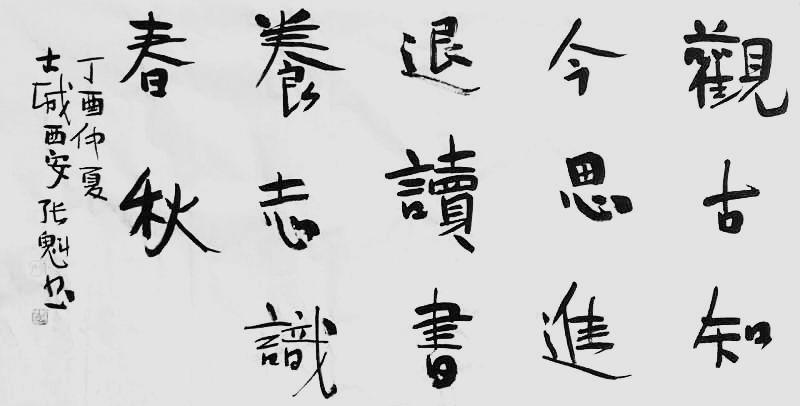 觀古知
今思進
退讀書
養志識
春秋
丁酉仲夏
古城西安 张魁